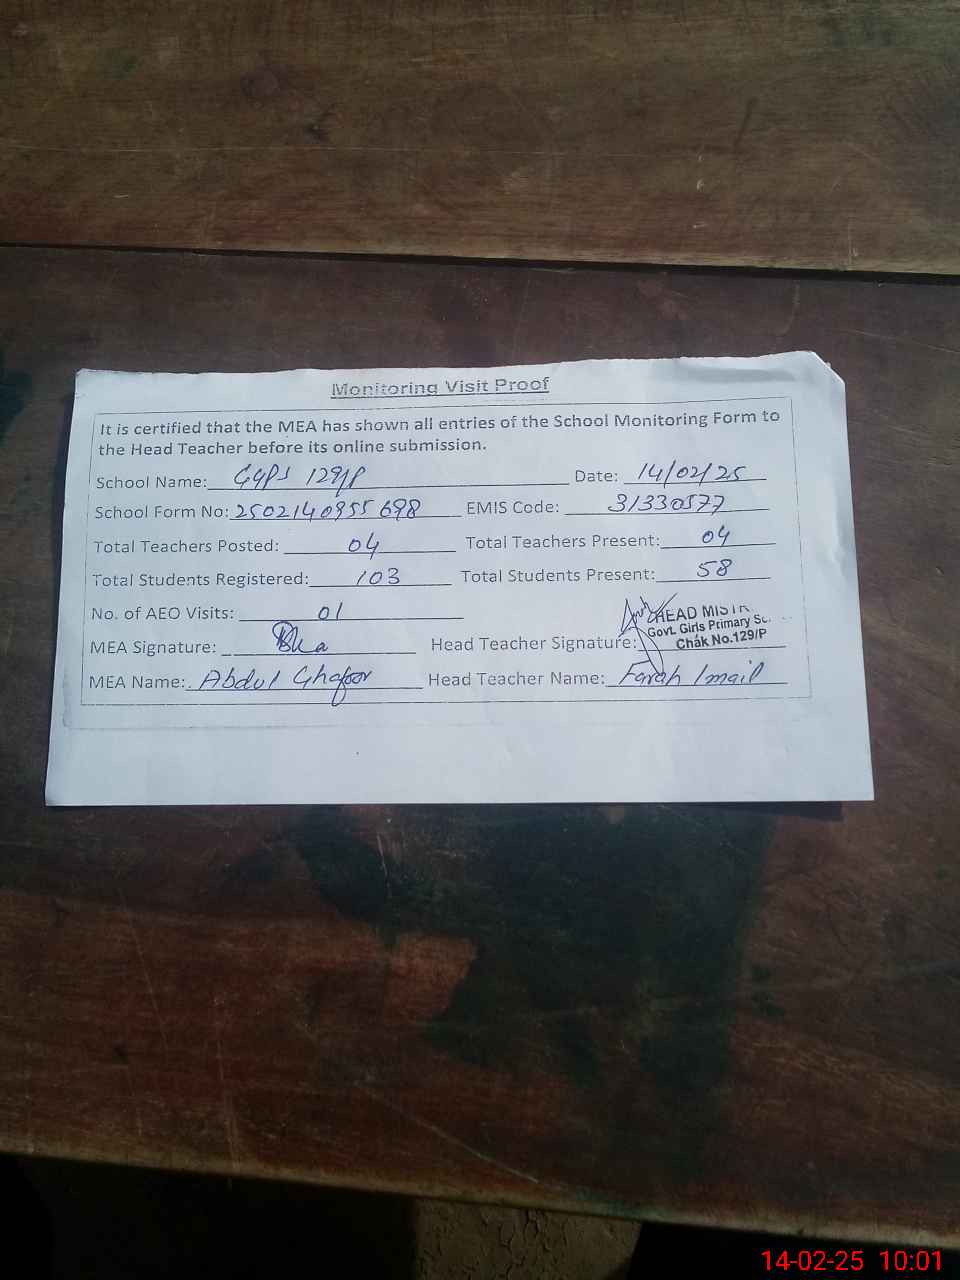 Monitoring Visit Proof
It is certified that the MEA has shown all entries of the School Monitoring Form to
the Head Teacher before its online submission.
School Name: GGPS 129/P Date: 14/02/25
School Form No: 2502140955698 EMIS Code: 31330577
Total Teachers Posted: 04 Total Teachers Present: 04
Total Students Registered: 103 Total Students Present: 58
No. of AEO Visits: 01
HEAD MISTR
Govt. Girls Primary Sc.
Chak No.129/P
MEA Signature: Head Teacher Signature:
MEA Name: Abdul Ghafoor Head Teacher Name: Farah Imail
14-02-25 10:01